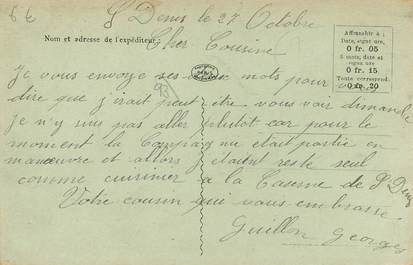 St Denis le 27 Octobre
Nom et adresse de l'expéditeur
Cher Cousine
Affranchir à :
Date, signature,
0 fr. 05
5 mots, date et
signature
0 fr. 15
Texte correspond.
0 fr. 20
Je vous envoye ses deux mots pour vous
dire que j'irait peut être vous voir dimanche
Je n'y suis pas aller plutot car pour le
moment la Compagnie était partie en
manœuvre et allors j'étaient reste seul
comme cuisinier a la Caserne de St Denis
Votre cousin qui vous embrasse
Guillon Georges